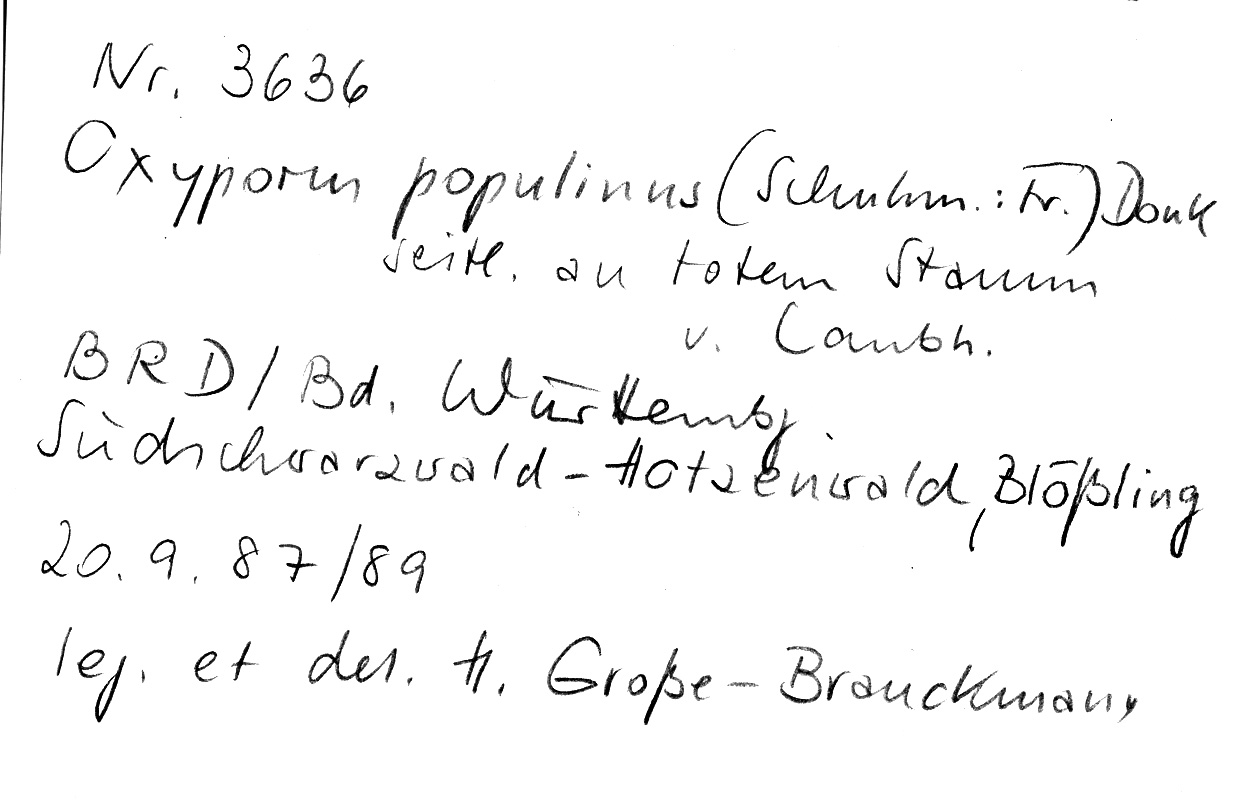 Nr. 3636
Oxyporus populinus (Schuhm.: Fr.) Donk
seitl. an totem Stamm
v. Laubh.
BRD/Bd. Württembg.
Südschwarzwald-Hotzenwald, Blößling
20.9.87/89
leg. et det. H. Große-Brauckmann